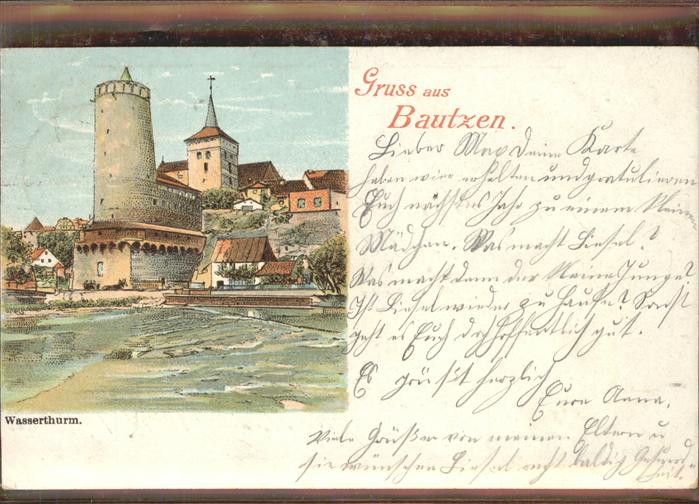 Gruss aus
Bautzen.
Lieber Max Deine Karte
haben wir erhalten und gratulieren
Euch nächstes Jahr zu einem kleinen
Mädchen. Was macht Liesel?
Was macht denn der kleine Junge?
Ist Liesel wieder zu Hause? Sonst
geht es Euch doch hoffentlich gut.
Es grüßt herzlich
Eure Anna.
Viele Grüße von meinen Eltern u
sie wünschen Liesel recht baldig Gesund-
heit.
Wasserthurm.